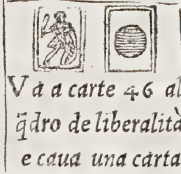 Va a carte 46 al
q̃dro de liberalità
e caua una carta